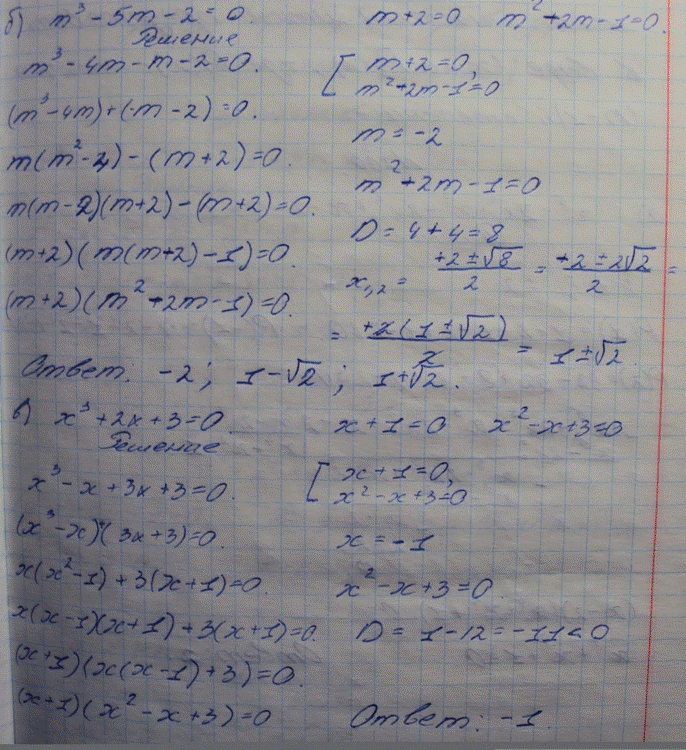 б) m³ - 5m - 2 = 0.
Решение
m³ - 4m - m - 2 = 0.
(m³ - 4m) + (-m - 2) = 0.
m(m² - 4) - (m + 2) = 0.
m(m - 2)(m + 2) - (m + 2) = 0.
(m + 2)(m(m + 2) - 1) = 0.
(m + 2)(m² + 2m - 1) = 0.
m + 2 = 0 m² + 2m - 1 = 0.
[ m + 2 = 0,
m² + 2m - 1 = 0
m = -2
m² + 2m - 1 = 0
D = 4 + 4 = 8
x₁,₂ = (+2 ± √8)/2 = (+2 ± 2√2)/2 =
= (+2(1 ± √2))/2 = 1 ± √2.
Ответ: -2; 1 - √2; 1 + √2.
в) x³ + 2x + 3 = 0.
Решение
x³ - x + 3x + 3 = 0.
(x³ - x) + (3x + 3) = 0.
x(x² - 1) + 3(x + 1) = 0.
x(x - 1)(x + 1) + 3(x + 1) = 0.
(x + 1)(x(x - 1) + 3) = 0.
(x + 1)(x² - x + 3) = 0
x + 1 = 0 x² - x + 3 = 0
[ x + 1 = 0,
x² - x + 3 = 0
x = -1
x² - x + 3 = 0.
D = 1 - 12 = -11 < 0
Ответ: -1.